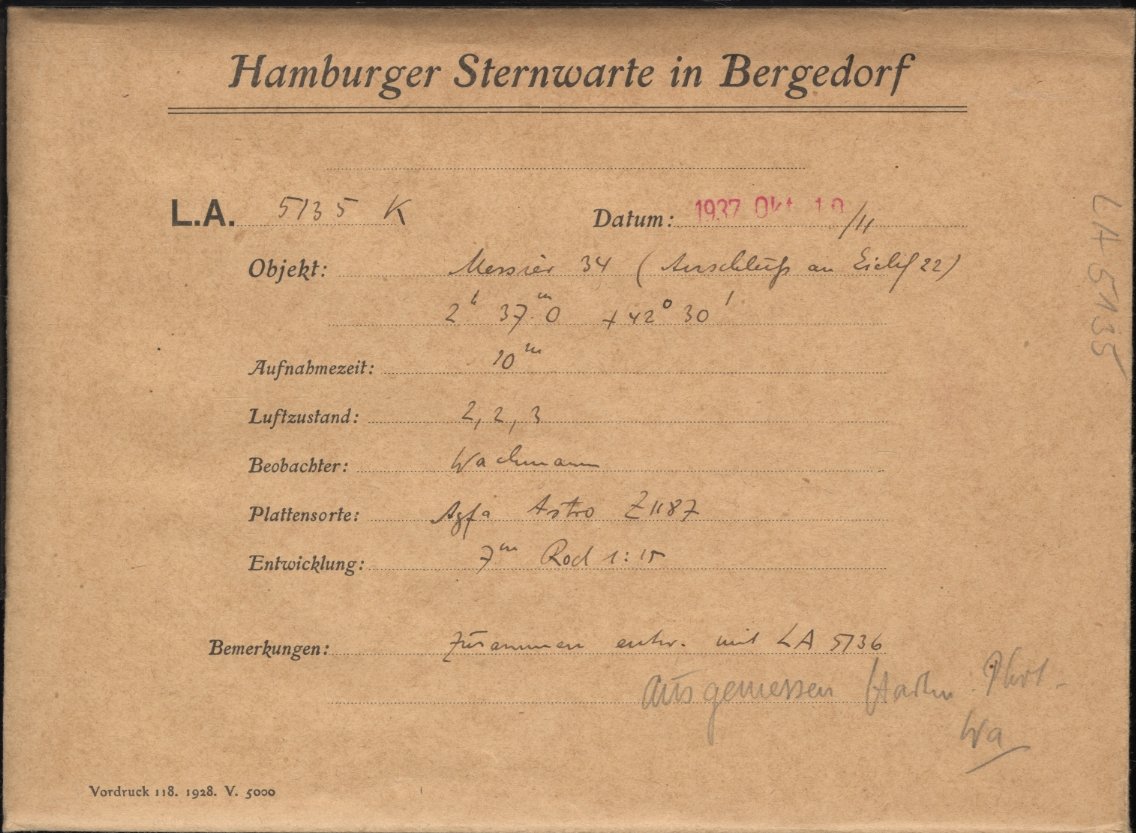 Hamburger Sternwarte in Bergedorf
L.A. 5135 K Datum: 1937 Okt. 10/11
Objekt: Messier 34 (Anschluß an Eichf 22)
2h 37m.0 +42° 30'
Aufnahmezeit: 10m
Luftzustand: 2, 2, 3
Beobachter: Wachmann
Plattensorte: Agfa Astro Z1187
Entwicklung: 7m Rod 1:15
Bemerkungen: Zusammen entw. mit LA 5136
ausgemessen Phot.
Wa
Vordruck 118. 1928. V. 5000
LA 5135